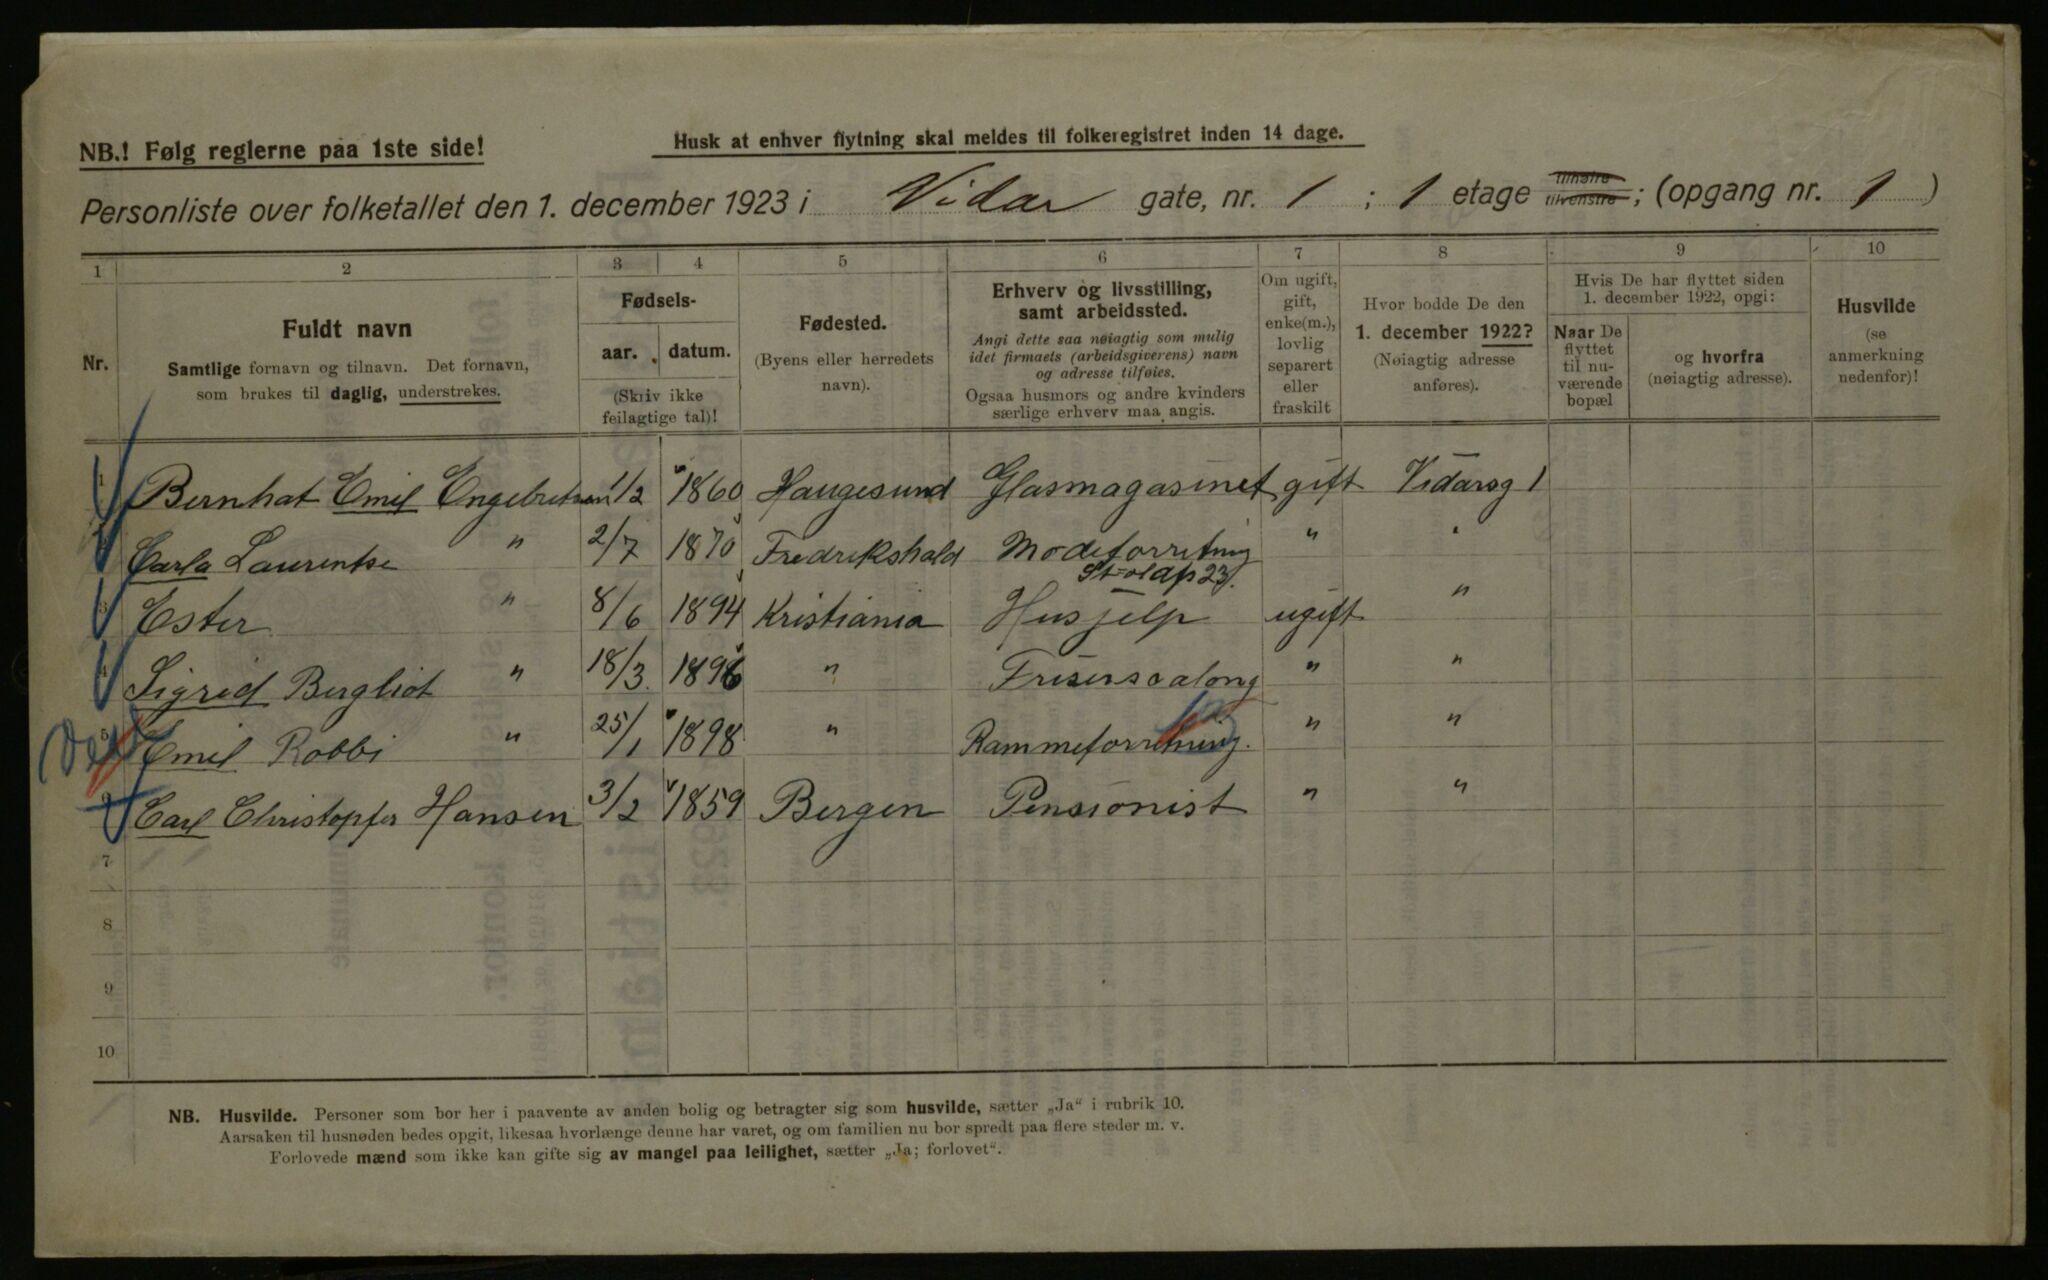 NB.! Følg reglerne paa 1ste side!
Husk at enhver flytning skal meldes til folkeregistret inden 14 dage.
Personliste over folketallet den 1. december 1923 i Vidar gate, nr. 1 ; 1 etage tilhøire tilvenstre ; (opgang nr. 1 )
1 2 3 4 5 6 7 8 9 10
Nr.
Fuldt navn
Samtlige fornavn og tilnavn. Det fornavn,
som brukes til daglig, understrekes.
Fødsels-
aar. datum.
(Skriv ikke
feilagtige tal)!
Fødested.
(Byens eller herredets
navn).
Erhverv og livsstilling,
samt arbeidssted.
Angi dette saa nøiagtig som mulig
idet firmaets (arbeidsgiverens) navn
og adresse tilføies.
Ogsaa husmors og andre kvinders
særlige erhverv maa angis.
Om ugift,
gift,
enke(m.),
lovlig
separert
eller
fraskilt
Hvor bodde De den
1. december 1922?
(Nøiagtig adresse
anføres).
Hvis De har flyttet siden
1. december 1922, opgi:
Naar De
flyttet
til nu-
værende
bopæl
og hvorfra
(nøiagtig adresse).
Husvilde
(se
anmerkning
nedenfor)!
1 Bernhat Emil Engebretsen 1/2 1860 Haugesund Glasmagasinet gift Vidarsg 1
2 Carla Laurentse " 2/7 1870 Fredrikshald Modeforretning " "
St=olafs 23.
3 Ester " 8/6 1894 Kristiania Husjelp ugift "
4 Sigrid Bergliot " 18/3. 1896 " Frisersalong " "
5 Emil Robbi " 25/1 1898 " Rammeforretning. " "
6 Carl Christopfer Hansen 3/2 1859 Bergen Pensionist " "
7
8
9
10
NB. Husvilde. Personer som bor her i paavente av anden bolig og betragter sig som husvilde, sætter „Ja“ i rubrik 10.
Aarsaken til husnøden bedes opgit, likesaa hvorlænge denne har varet, og om familien nu bor spredt paa flere steder m. v.
Forlovede mænd som ikke kan gifte sig av mangel paa leilighet, sætter „Ja; forlovet“.